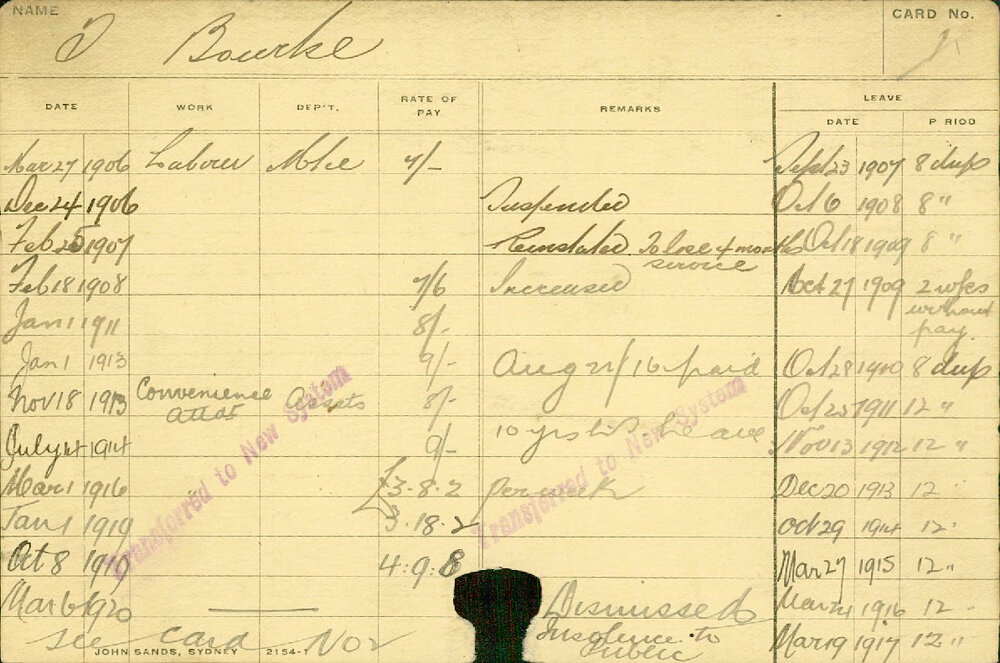 NAME
CARD No.
Bourke
DATE WORK DEP'T. RATE OF PAY REMARKS LEAVE
DATE PERIOD
Mar 27 1906 Labourer 7/- Sept 23 1907 8 days
Dec 24 1906 Suspended Oct 6 1908 8 "
Feb 25 1907 Reinstated. To lose 4 months service Oct 18 1909 8 "
Feb 18 1908 7/6 Increased Oct 27 1909 2 wks without pay
Jan 1 1911 8/-
Jan 1 1913 9/- Aug 21/16 paid Oct 28 1910 8 days
Nov 18 1913 Convenience attdt Assets 8/- Oct 23 1911 12 "
July 14 1914 9/- 10 yrs Leave Nov 13 1912 12 "
Mar 1 1916 £3-8-2 per week Dec 20 1913 12 "
Jan 1 1919 3-18-2 Oct 29 1914 12 "
Oct 8 4-9-8 Mar 27 1915 12 "
Mar 6 1920 Dismissed Mar 24 1916 12 "
see card No 2 Insolence to Public Mar 19 1917 12 "
JOHN SANDS, SYDNEY 2154-1
Transferred to New System
Transferred to New System